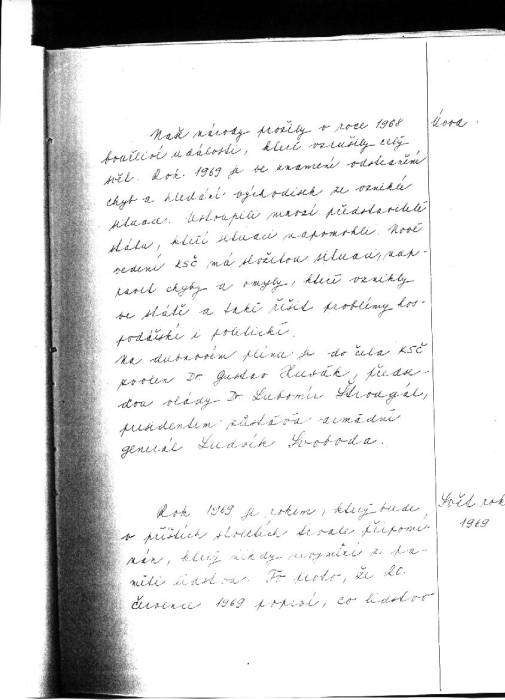 Naše národy prožily v roce 1968
bouřlivé události, které vzrušily celý
svět. Rok 1969 je ve znamení odstranění
chyb a hledání východisek ze vzniklé
situace. Ustoupili mnozí představitelé
státu, kteří situaci napomohli. Nové
vedení KSČ má složitou situaci, nap-
ravit chyby a omyly, které vznikly
ve státě a také řešit problémy hos-
podářské i politické.
Na dubnovém plénu je do čela KSČ
zvolen Dr. Gustav Husák, předse-
dou vlády Dr. Lubomír Štrougal,
presidentem zůstává armádní
generál Ludvík Svoboda.
Úvod.
Rok 1969 je rokem, který bude
v příštích stoletích trvale připomí-
nán, který nikdy nevymizí z pa-
měti lidstva. To proto, že 20.
července 1969 poprvé, co lidstvo
Svět rok
1969